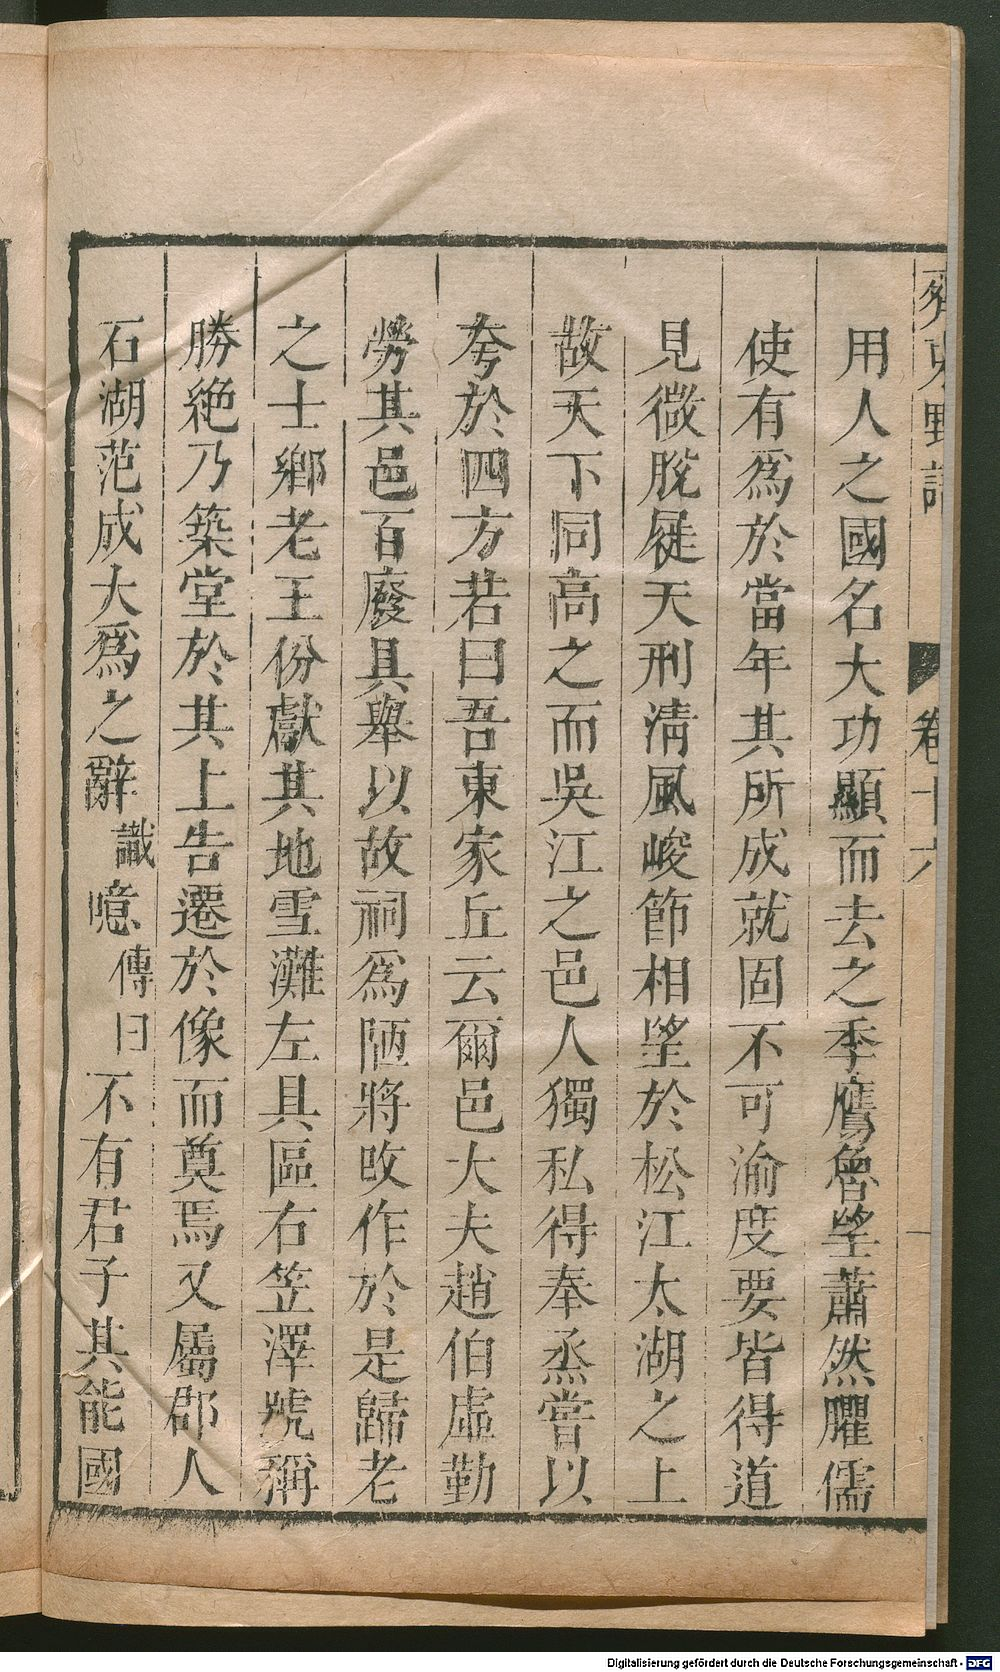 齊東野語 卷十六
用人之國名大功顯而去之季鷹魯望蕭然臞儒
使有爲於當年其所成就固不可渝度要皆得道
見微脫屣天刑淸風峻節相望於松江太湖之上
故天下同高之而吳江之邑人獨私得奉烝嘗以
夸於四方若曰吾東家丘云爾邑大夫趙伯虛勤
勞其邑百廢具舉以故祠爲陋將改作於是歸老
之士鄉老王份獻其地雪灘左具區右笠澤號稱
勝絶乃築堂於其上告遷於像而奠焉又屬郡人
石湖范成大爲之辭識噫傳曰不有君子其能國
Digitalisierung gefördert durch die Deutsche Forschungsgemeinschaft - DFG